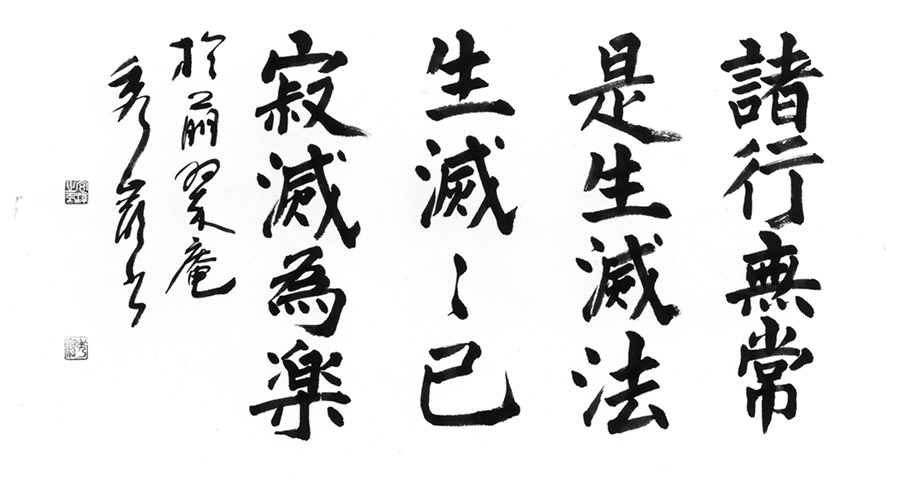 諸行無常
是生滅法
生滅〻已
寂滅為楽
於萠翠庵